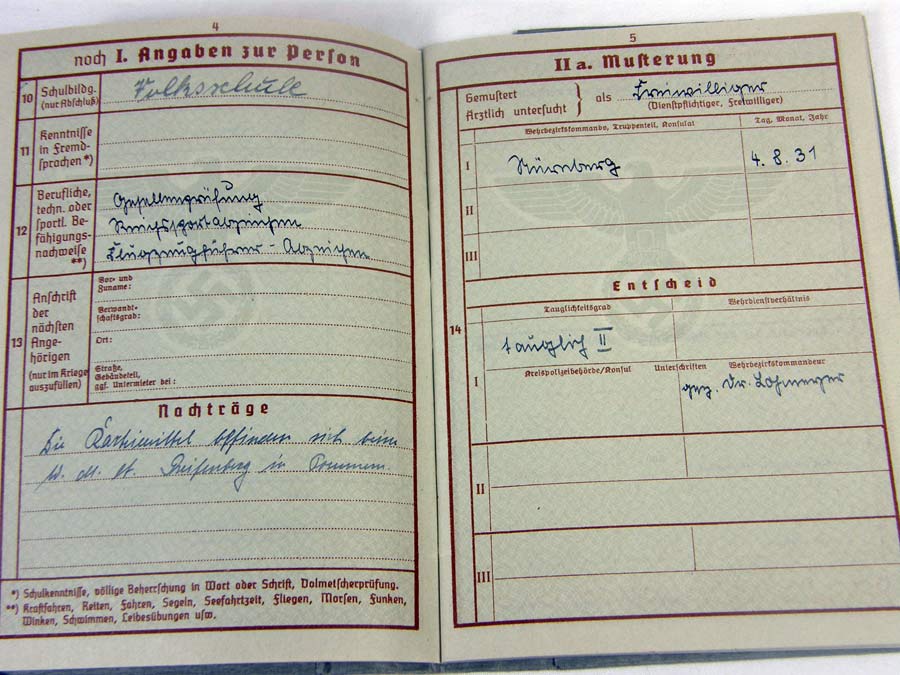 4
noch I. Angaben zur Person
10 Schulbildg. (nur Abschluß)
Volksschule
11 Kenntnisse in Fremd-sprachen *)
12 Berufliche, techn. oder sportl. Be-fähigungs-nachweise **)
Gesellenprüfung
Reichssportabzeichen
Flugzeugführer-Abzeichen
13 Anschrift der nächsten Ange-hörigen (nur im Kriege auszufüllen)
Vor- und Zuname:
Verwandt-schaftsgrad:
Ort:
Straße, Gebäudeteil, ggf. Untermieter bei:
Nachträge
Die befinden sich beim
W. M. A. Greifenberg in Pommern.
*) Schulkenntnisse, völlige Beherrschung in Wort oder Schrift, Dolmetscherprüfung.
**) Kraftfahren, Reiten, Fahren, Segeln, Seefahrtzeit, Fliegen, Morsen, Funken,
Winken, Schwimmen, Leibesübungen usw.
5
II a. Musterung
Gemustert
Ärztlich untersucht } als Freiwilliger
(Dienstpflichtiger, Freiwilliger)
Wehrbezirkskommando, Truppenteil, Konsulat
Tag, Monat, Jahr
I Nürnberg 4. 8. 31
II
III
14
Entscheid
Tauglichkeitsgrad Wehrdienstverhältnis
tauglich II
I Kreispolizeibehörde/Konsul Unterschriften Wehrbezirkskommandeur
gez. Dr. Lohmeyer
II
III